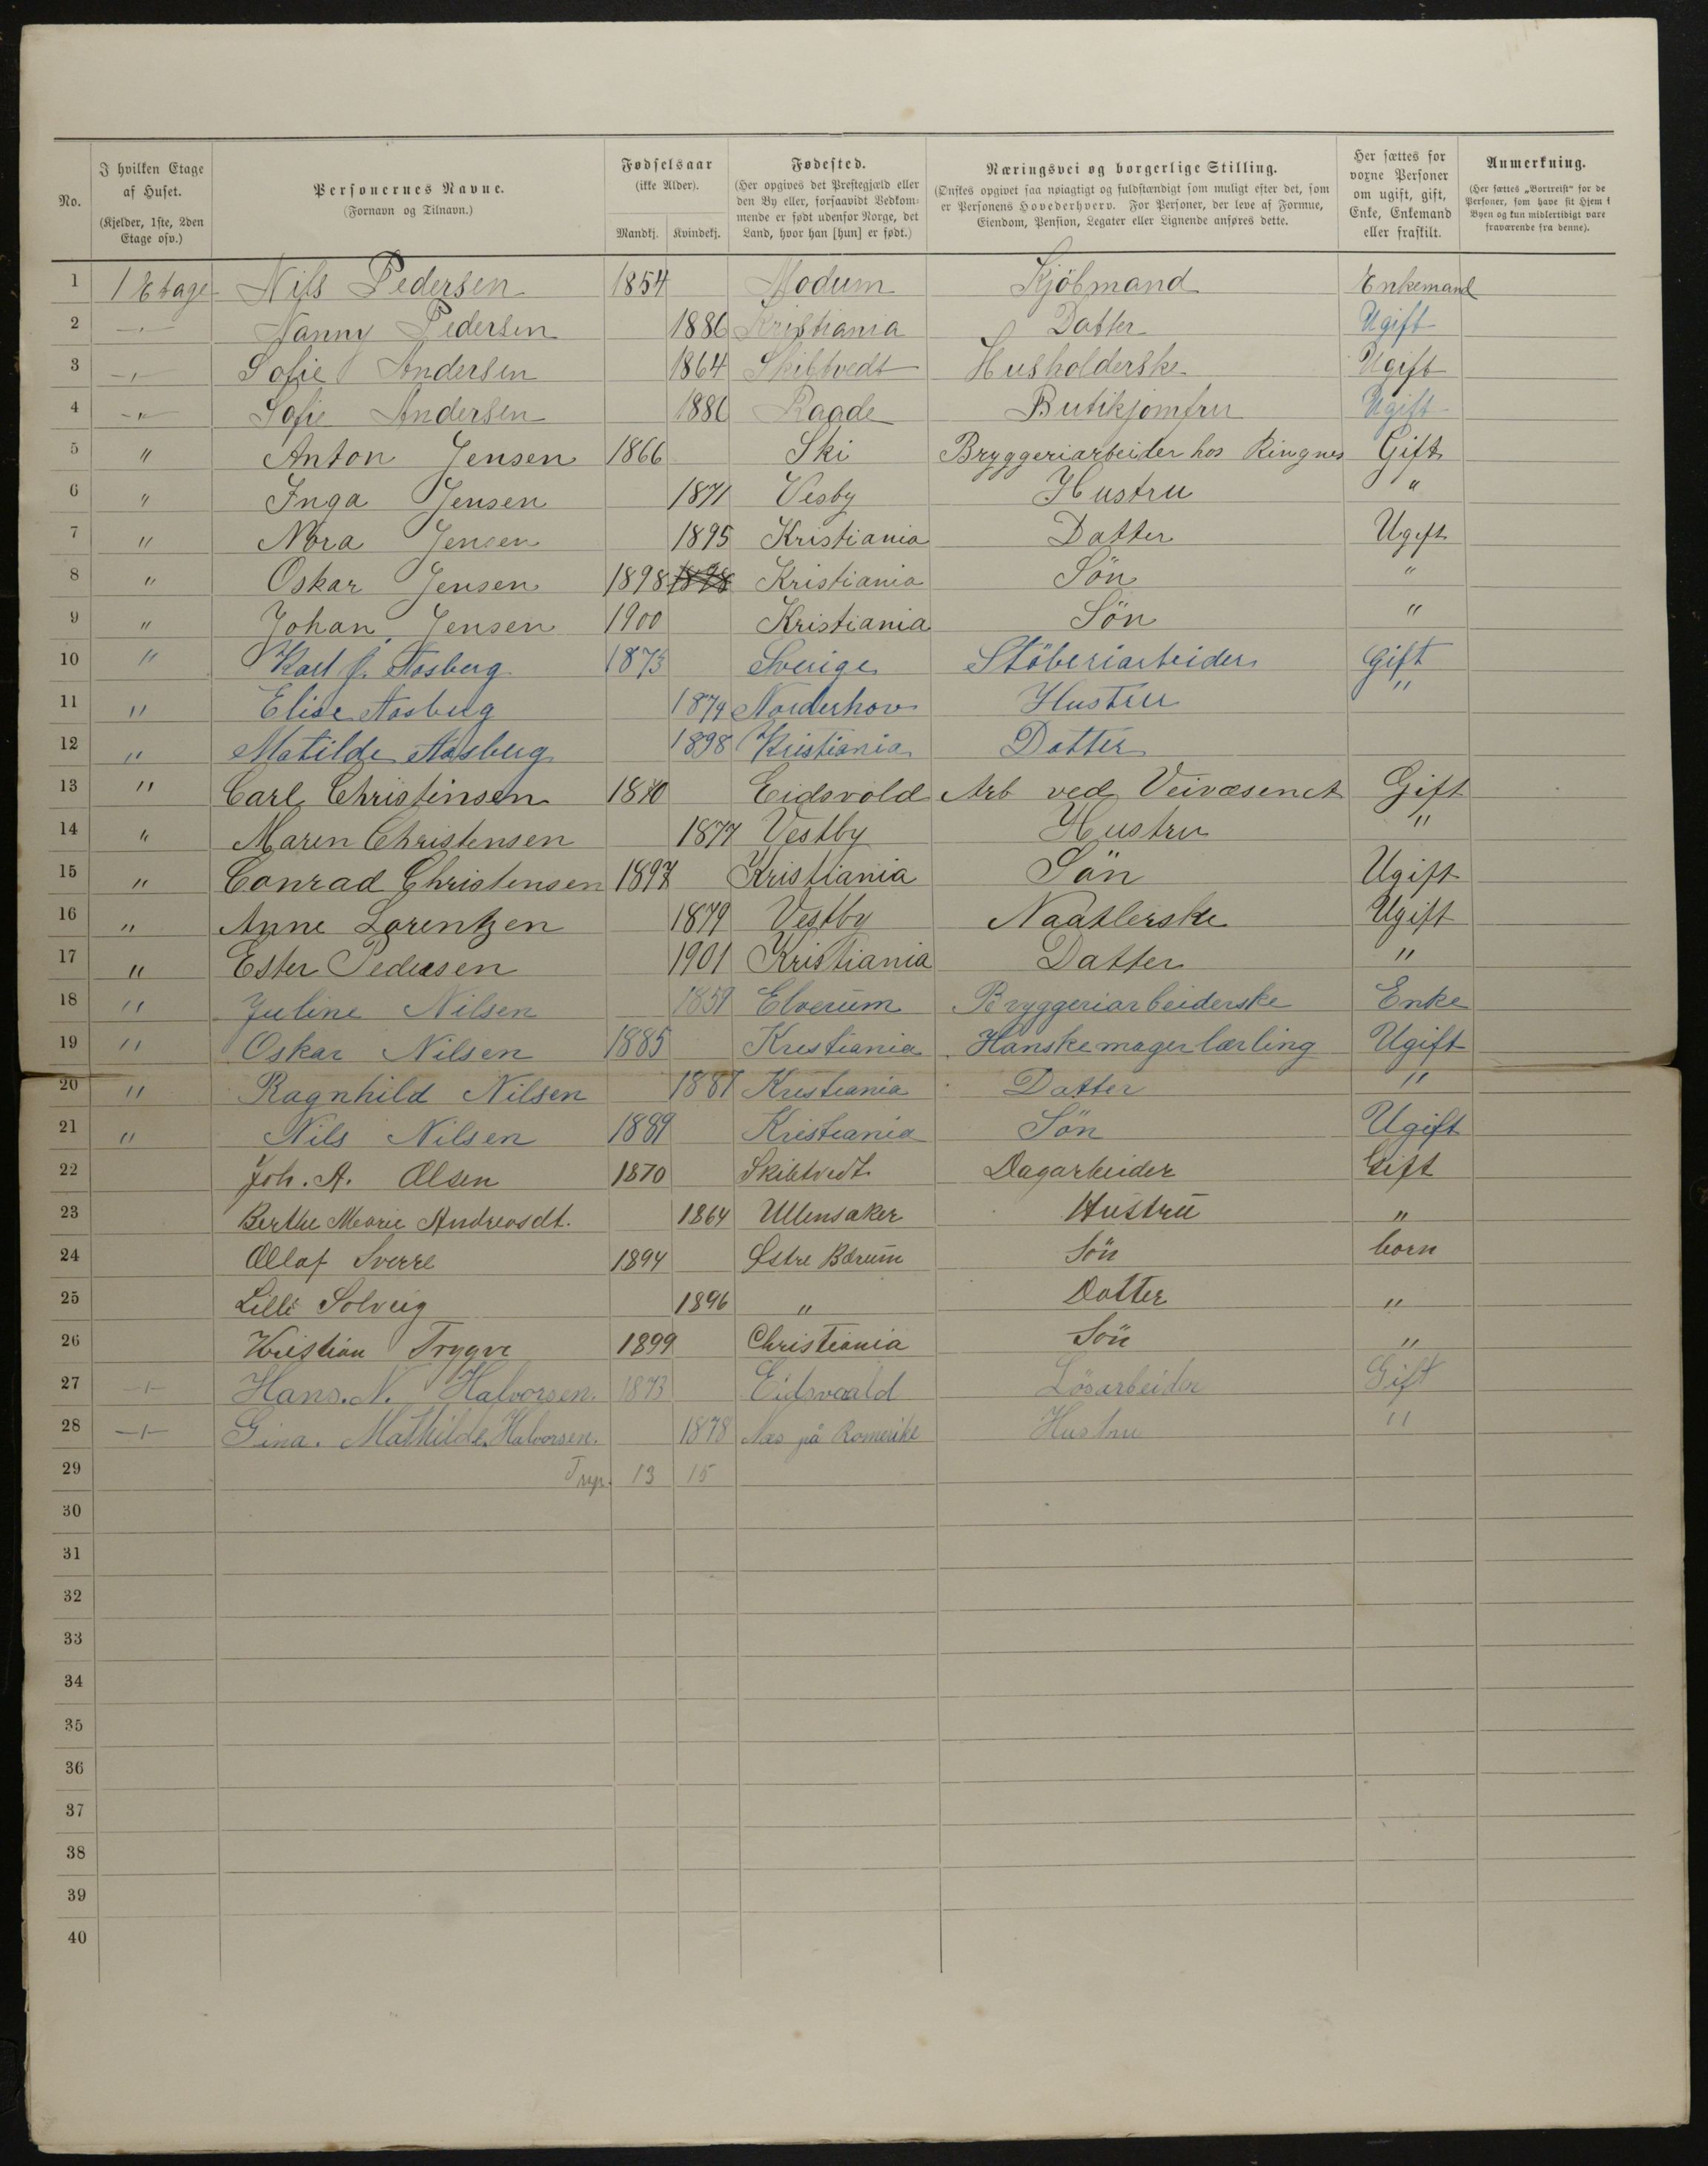 No. | I hvilken Etage af Huset. (Kjelder, 1ste, 2den Etage osv.) | Personernes Navne. (Fornavn og Tilnavn.) | Fødselsaar (ikke Alder). Mandkj. | Kvindekj. | Fødested. (Her opgives det Prestegjæld eller den By eller, forsaavidt Vedkommende er født udenfor Norge, det Land, hvor han [hun] er født.) | Næringsvei og borgerlige Stilling. (Ønskes opgivet saa nøiagtigt og fuldstændigt som muligt efter det, som er Personens Hovederhverv. For Personer, der leve af Formue, Eiendom, Pension, Legater eller Lignende anføres dette. | Her sættes for voxne Personer om ugift, gift, Enke, Enkemand eller fraskilt. | Anmerkning. (Her sættes „Bortreist“ for de Personer, som have sit Hjem i Byen og kun midlertidigt vare fraværende fra denne).
1 | 1 Etage | Nils Pedersen | 1854 | | Modum | Kjöbmand | Enkemand
2 | -"- | Nanny Pedersen | | 1886 | Kristiania | Datter | Ugift
3 | -"- | Sofie Andersen | | 1864 | Skibtvedt | Husholderske | Ugift
4 | -"- | Sofie Andersen | | 1886 | Raade | Butikjomfru | Ugift
5 | " | Anton Jensen | 1866 | | Ski | Bryggeriarbeider hos Ringnes | Gift
6 | " | Inga Jensen | | 1871 | Vesby | Hustru | "
7 | " | Nora Jensen | | 1895 | Kristiania | Datter | Ugift
8 | " | Oskar Jensen | 1898 | 1898 | Kristiania | Sön | "
9 | " | Johan Jensen | 1900 | | Kristiania | Sön | "
10 | " | Karl J. Aasberg | 1873 | | Sverige | Stöberiarbeider | Gift
11 | " | Elise Aasberg | | 1874 | Norderhov | Hustru | "
12 | " | Matilde Aasberg | | 1898 | Kristiania | Datter
13 | " | Carl Christinsen | 1870 | | Eidsvold | Arb ved Veivæsenet | Gift
14 | " | Maren Christensen | | 1877 | Vestby | Hustru | "
15 | " | Conrad Christensen | 1897 | | Kristiania | Sön | Ugift
16 | " | Anne Lorentzen | | 1879 | Vestby | Naatlerske | Ugift
17 | " | Ester Pedersen | | 1901 | Kristiania | Datter | "
18 | " | Juline Nilsen | | 1859 | Elverum | Bryggeriarbeiderske | Enke
19 | " | Oskar Nilsen | 1885 | | Kristiania | Hanskemagerlærling | Ugift
20 | " | Ragnhild Nilsen | | 1887 | Kristiania | Datter | "
21 | " | Nils Nilsen | 1889 | | Kristiania | Sön | Ugift
22 | | Joh. A. Olsen | 1870 | | Skibtvedt | Dagarbeider | Gift
23 | | Berthe Marie Andreasdt. | | 1864 | Ullensaker | Hustru | "
24 | | Ollaf Sverre | 1894 | | Østre Bærum | Sön | barn
25 | | Lilli Solveig | | 1896 | " | Datter | "
26 | | Kristian Trygve | 1899 | | Christiania | Sön | "
27 | -"- | Hans. N. Halvorsen. | 1873 | | Eidsvaald | Lösarbeider | Gift
28 | -"- | Gina. Mathilde. Halvorsen. | | 1878 | Næs på Romerike | Hustru | "
29 | | | 13 | 15
30
31
32
33
34
35
36
37
38
39
40